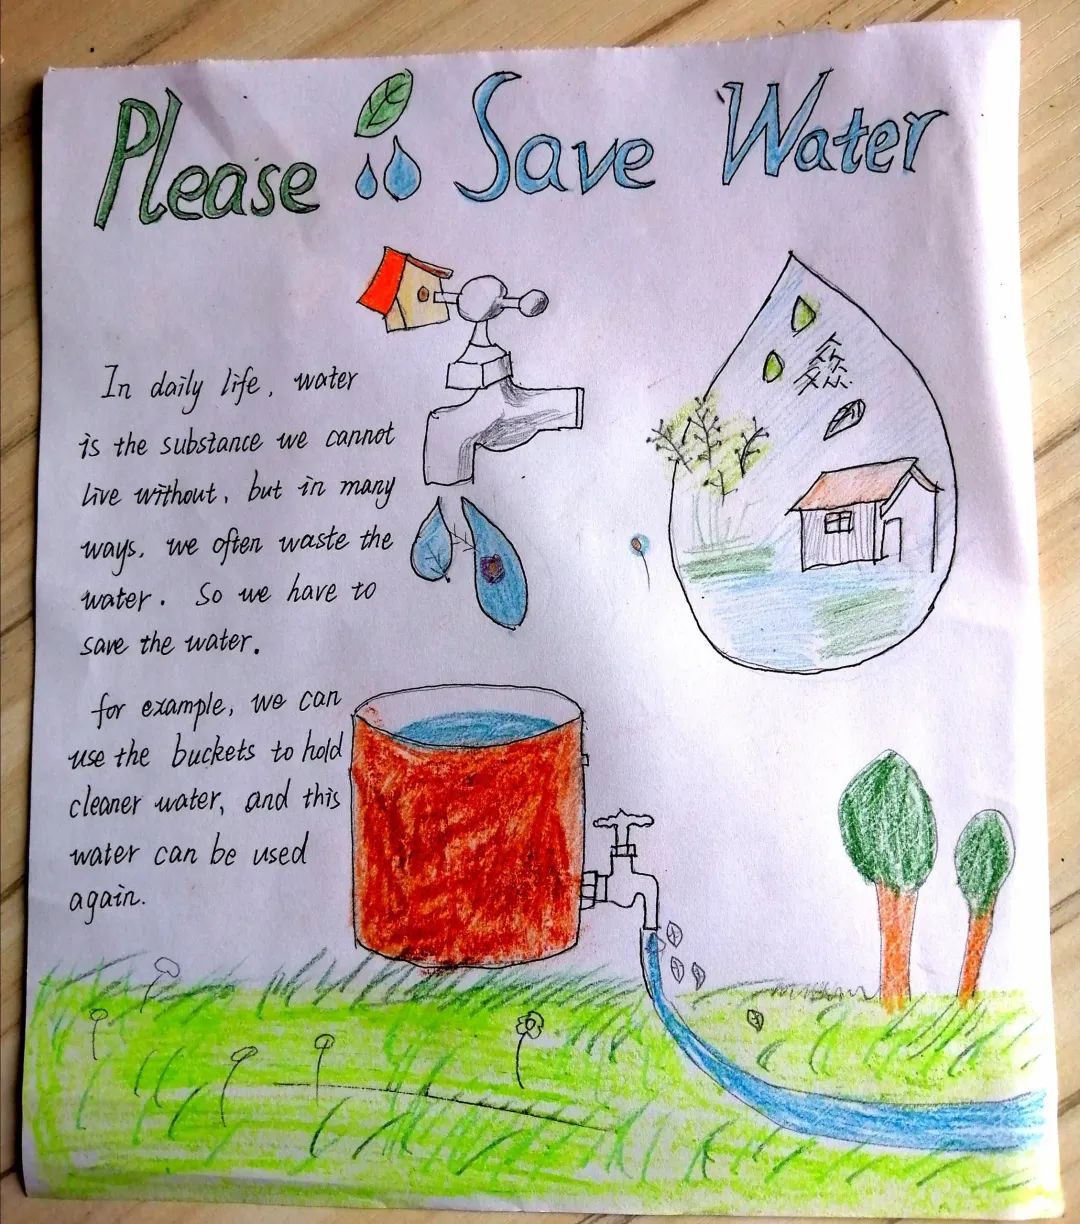 Please Save Water
In daily life, water
is the substance we cannot
live without, but in many
ways, we often waste the
water. So we have to
save the water.
for example, we can
use the buckets to hold
cleaner water, and this
water can be used
again.